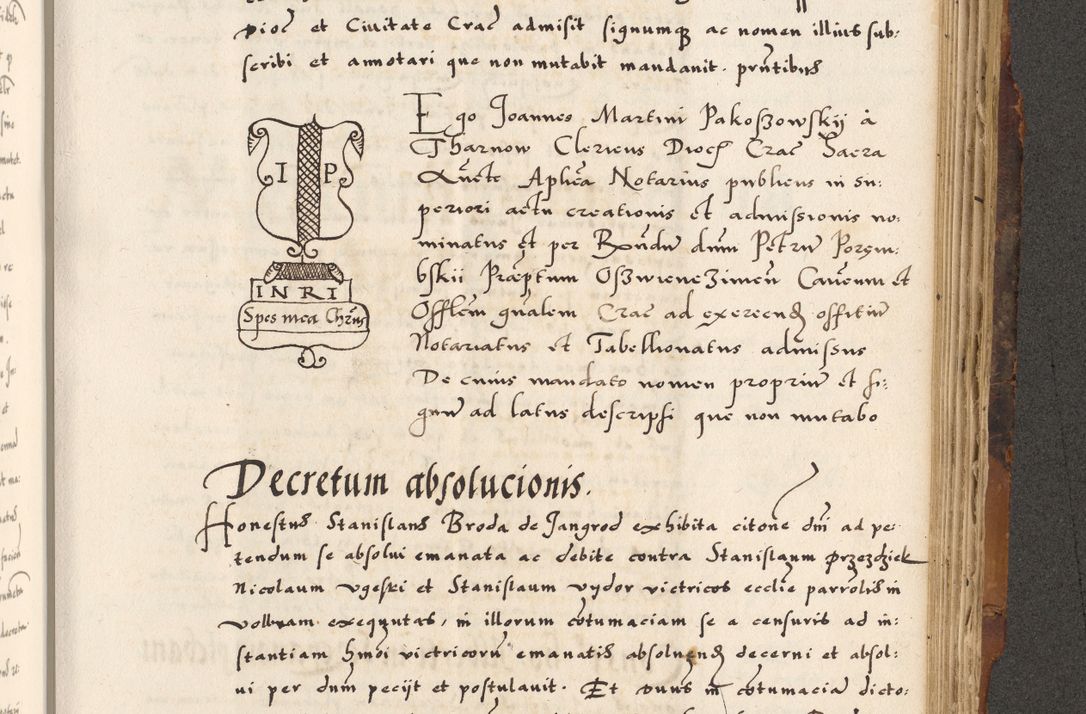 pioć et Ciuitate Crać admisit signumq ac nomen illius sub:
scribi et annotari que non mutabit mandauit. pr̃ntibus
Ego Joannes Martini Pakoszowskÿ à
Tharnow Clericus Dioc̃ Crac̃ Sacra
Auc̃te Aplic̃a Notarius publicus in su:
periori actu creationis et admissionis no:
minatus et per Rx̃ndũ dnm̃ Petrũ Porem:
bskii Præptum Oszwienczimeñ Cañcum et
Offlem̃ gñalem Crac̃ ad exercend offitiũ
Notariatus et Tabellionatus admissus
De cuius mandato nomen propriũ et si:
gnũ ad latus descripsi que non mutabo
I P
INRI
Spes mea Chr̃us
Decretum absolucionis.
Honestus Stanislaus Broda de Jangrod exhibita citõne dñi ad pe
tendum se absolui emanata ac debite contra Stanislaum Przezdziek
Nicolaum vgeski et Stanislaum vydor victricos ecclie parrolis in
volbram exequutas, in illorum cõtumaciam se a censuris ad in:
stantiam hm̃oi victricorũ emanatis absoluend decerni et absol:
ui per dnm̃ pecijt et postulauit. Et dnus in cõtumaciã dicto: